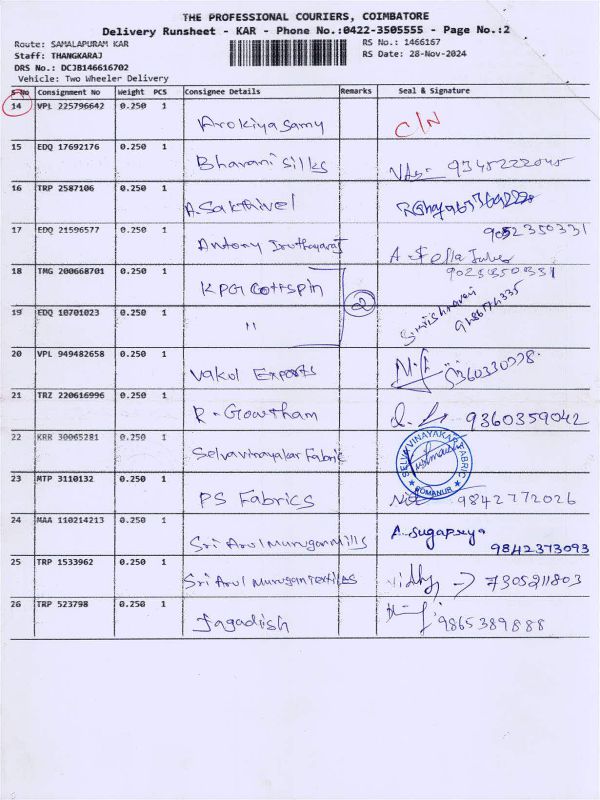 THE PROFESSIONAL COURIERS, COIMBATORE
Delivery Runsheet - KAR - Phone No.:0422-3505555 - Page No.:2
Route: SAMALAPURAM KAR RS No.: 1466167
Staff: THANGKARAJ RS Date: 28-Nov-2024
DRS No.: DCJB146616702
Vehicle: Two Wheeler Delivery
S No Consignment No Weight PCS Consignee Details Remarks Seal & Signature
14 VPL 225796642 0.250 1 Arokiya Samy C/N
15 EDQ 17692176 0.250 1 Bharani Silks
16 TRP 2587106 0.250 1 A. Sakthivel
17 EDQ 21596577 0.250 1 Antony 9052350331
18 TMG 200668701 0.250 1 KPG Cottspin 2
19 EDQ 10701023 0.250 1 "
20 VPL 949482658 0.250 1 Vakul Exports
21 TRZ 220616996 0.250 1 R. Gowtham 9360359042
22 KRR 30065281 0.250 1 Selvavinayakar Fabric SELVA VINAYAKAR FABRIC
23 MTP 3110132 0.250 1 PS Fabrics 9842772026
24 MAA 110214213 0.250 1 Sri Arul Murugan Mills A. Sugapriya
9842373093
25 TRP 1533962 0.250 1 Sri Arul Murugan Textiles Vidhy → 7305211803
26 TRP 523798 0.250 1 Jagadish 9865389888